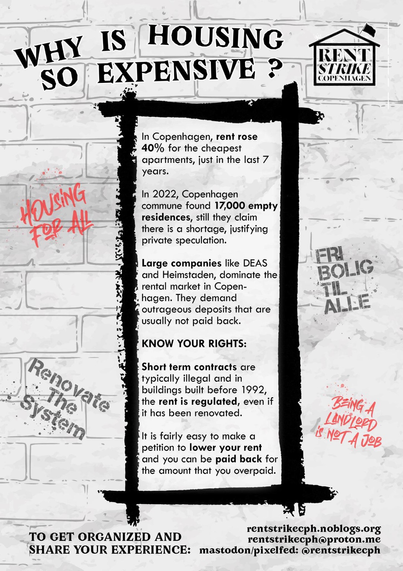 WHY IS HOUSING
SO EXPENSIVE ?
RENT
STRIKE
COPENHAGEN
In Copenhagen, rent rose
40% for the cheapest
apartments, just in the last 7
years.
In 2022, Copenhagen
commune found 17,000 empty
residences, still they claim
there is a shortage, justifying
private speculation.
Large companies like DEAS
and Heimstaden, dominate the
rental market in Copen-
hagen. They demand
outrageous deposits that are
usually not paid back.
KNOW YOUR RIGHTS:
Short term contracts are
typically illegal and in
buildings built before 1992,
the rent is regulated, even if
it has been renovated.
It is fairly easy to make a
petition to lower your rent
and you can be paid back for
the amount that you overpaid.
HOUSING
FOR ALL
FRI
BOLIG
TIL
ALLE
Renovate
The
System
BEING A
LANDLORD
IS NOT A JOB
TO GET ORGANIZED AND
SHARE YOUR EXPERIENCE:
rentstrikecph.noblogs.org
rentstrikecph@proton.me
mastodon/pixelfed: @rentstrikecph